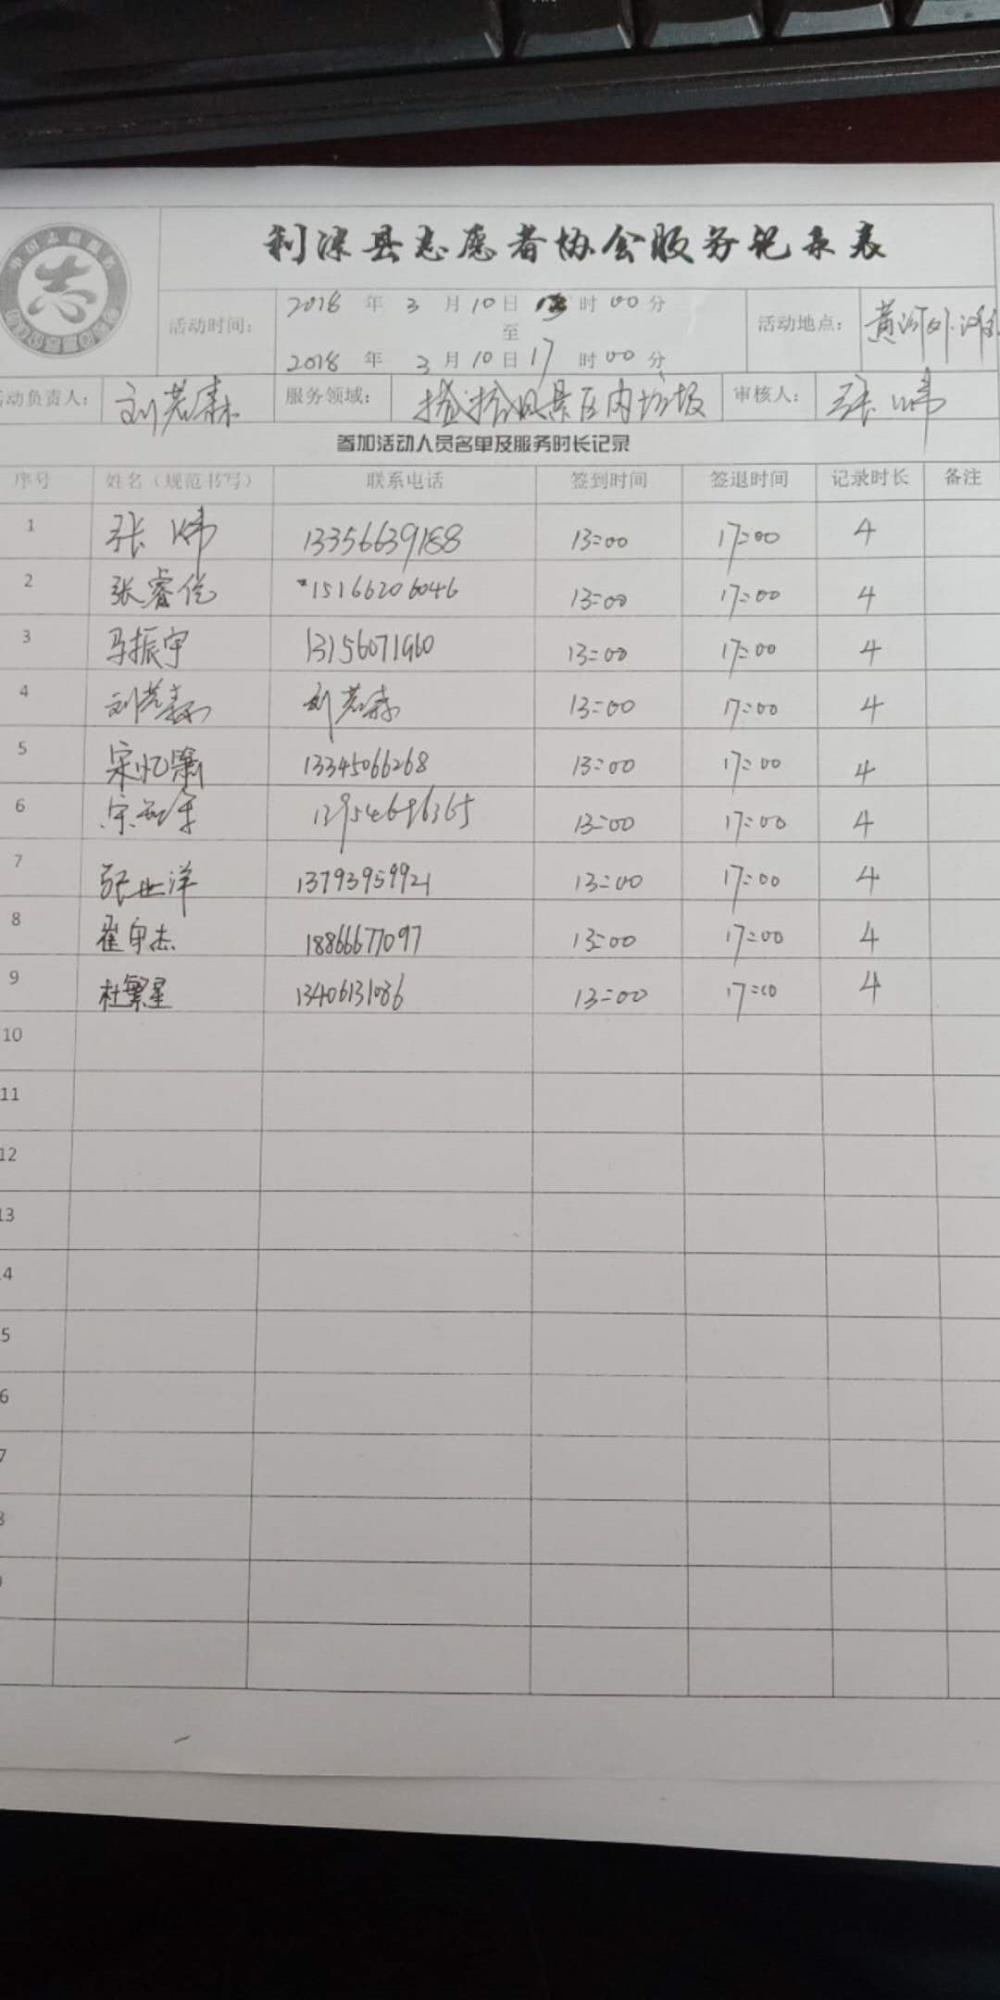 利津县志愿者协会服务记录表
志
活动时间： 2018 年 3 月 10 日 13 时 00 分
至
2018 年 3 月 10 日 17 时 00 分
活动地点： 黄河外滩
动负责人： 刘若森 服务领域： 捡拾风景区内垃圾 审核人： 张
参加活动人员名单及服务时长记录
序号 姓名（规范书写） 联系电话 签到时间 签退时间 记录时长 备注
1 张 13356639188 13:00 17:00 4
2 张睿 15166206046 13:00 17:00 4
3 马振宇 13156071960 13:00 17:00 4
4 刘若森 刘若森 13:00 17:00 4
5 宋忆 13345066268 13:00 17:00 4
6 宋 13:00 17:00 4
7 张世洋 13793959921 13:00 17:00 4
8 崔 杰 18866677097 13:00 17:00 4
9 杜繁星 13406131086 13:00 17:00 4
10
11
12
13
4
5
6
7
8